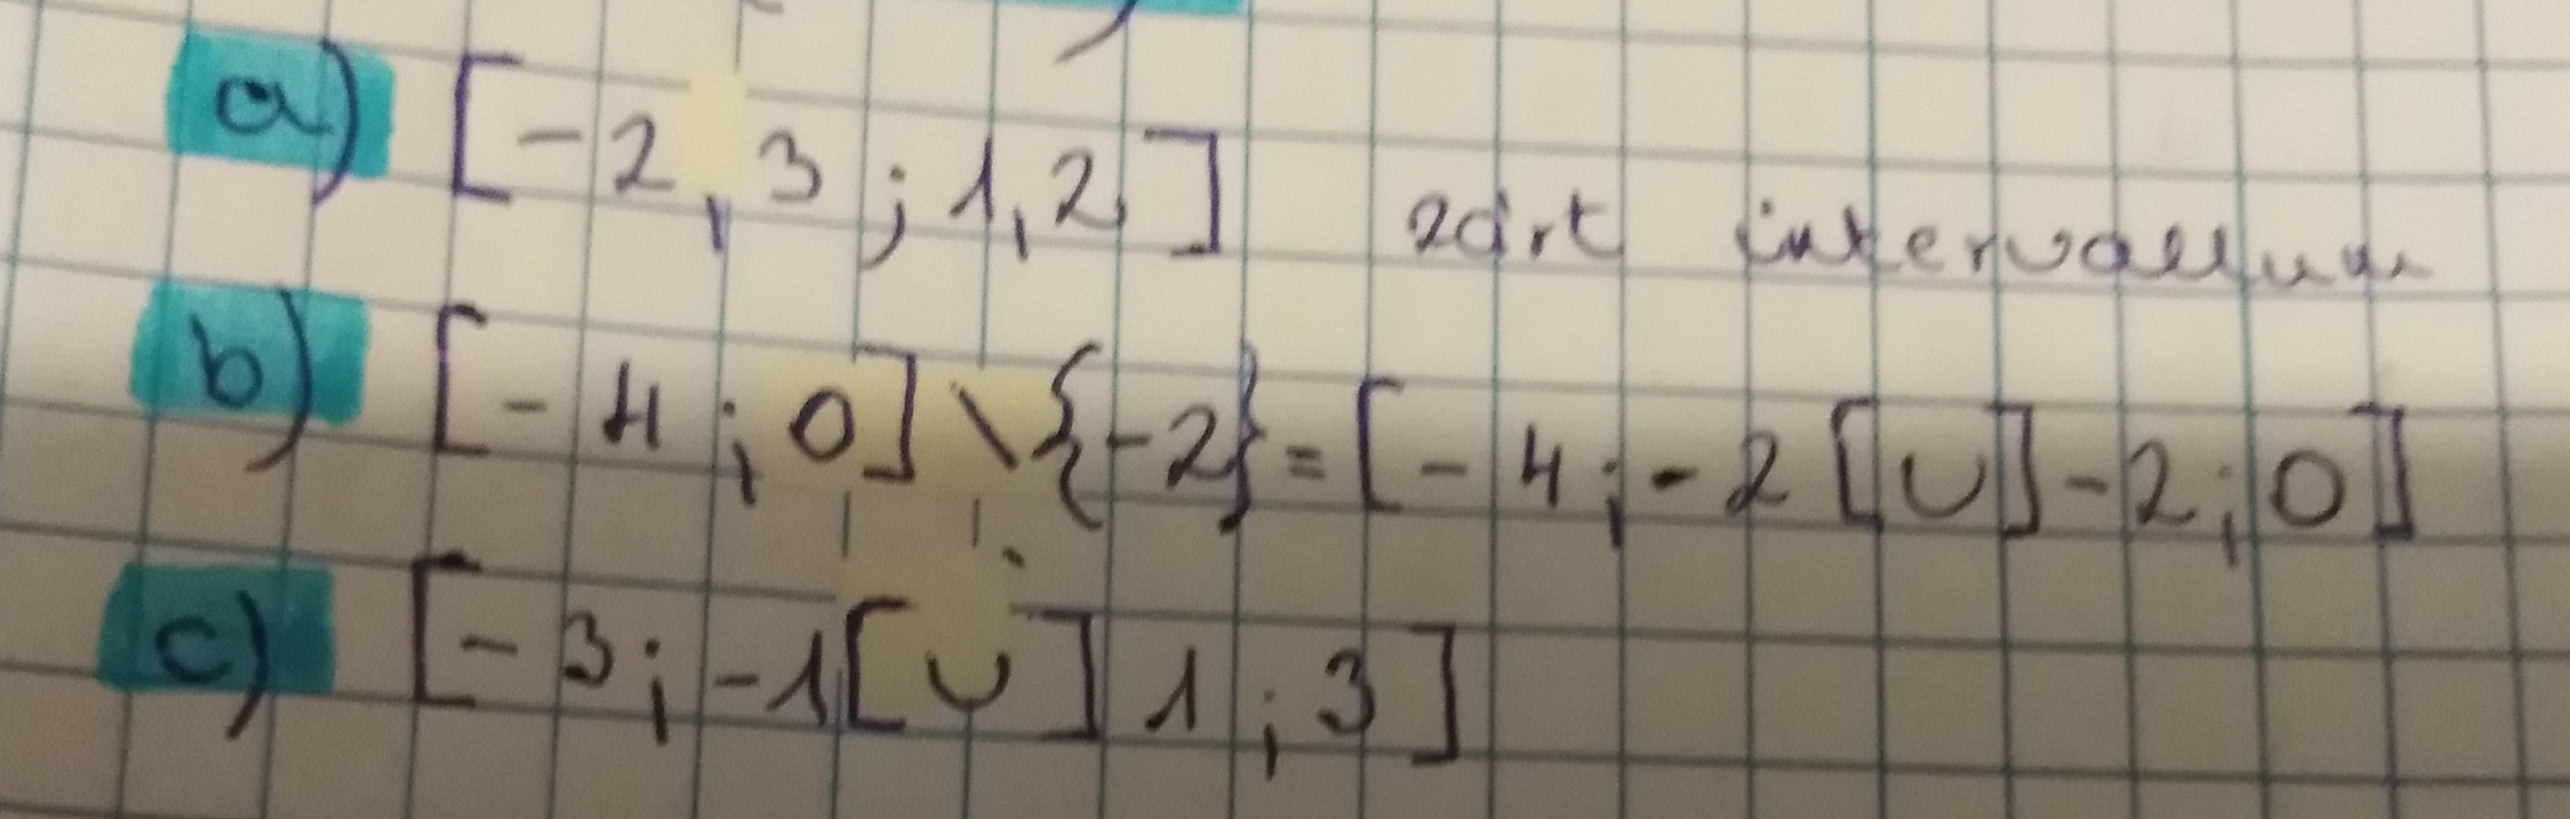 a) [-2,3 ; 1,2] zárt intervallum
b) [-4 ; 0] \ {-2} = [-4 ; -2[ ∪ ]-2 ; 0]
c) [-3 ; -1[ ∪ ]1 ; 3]